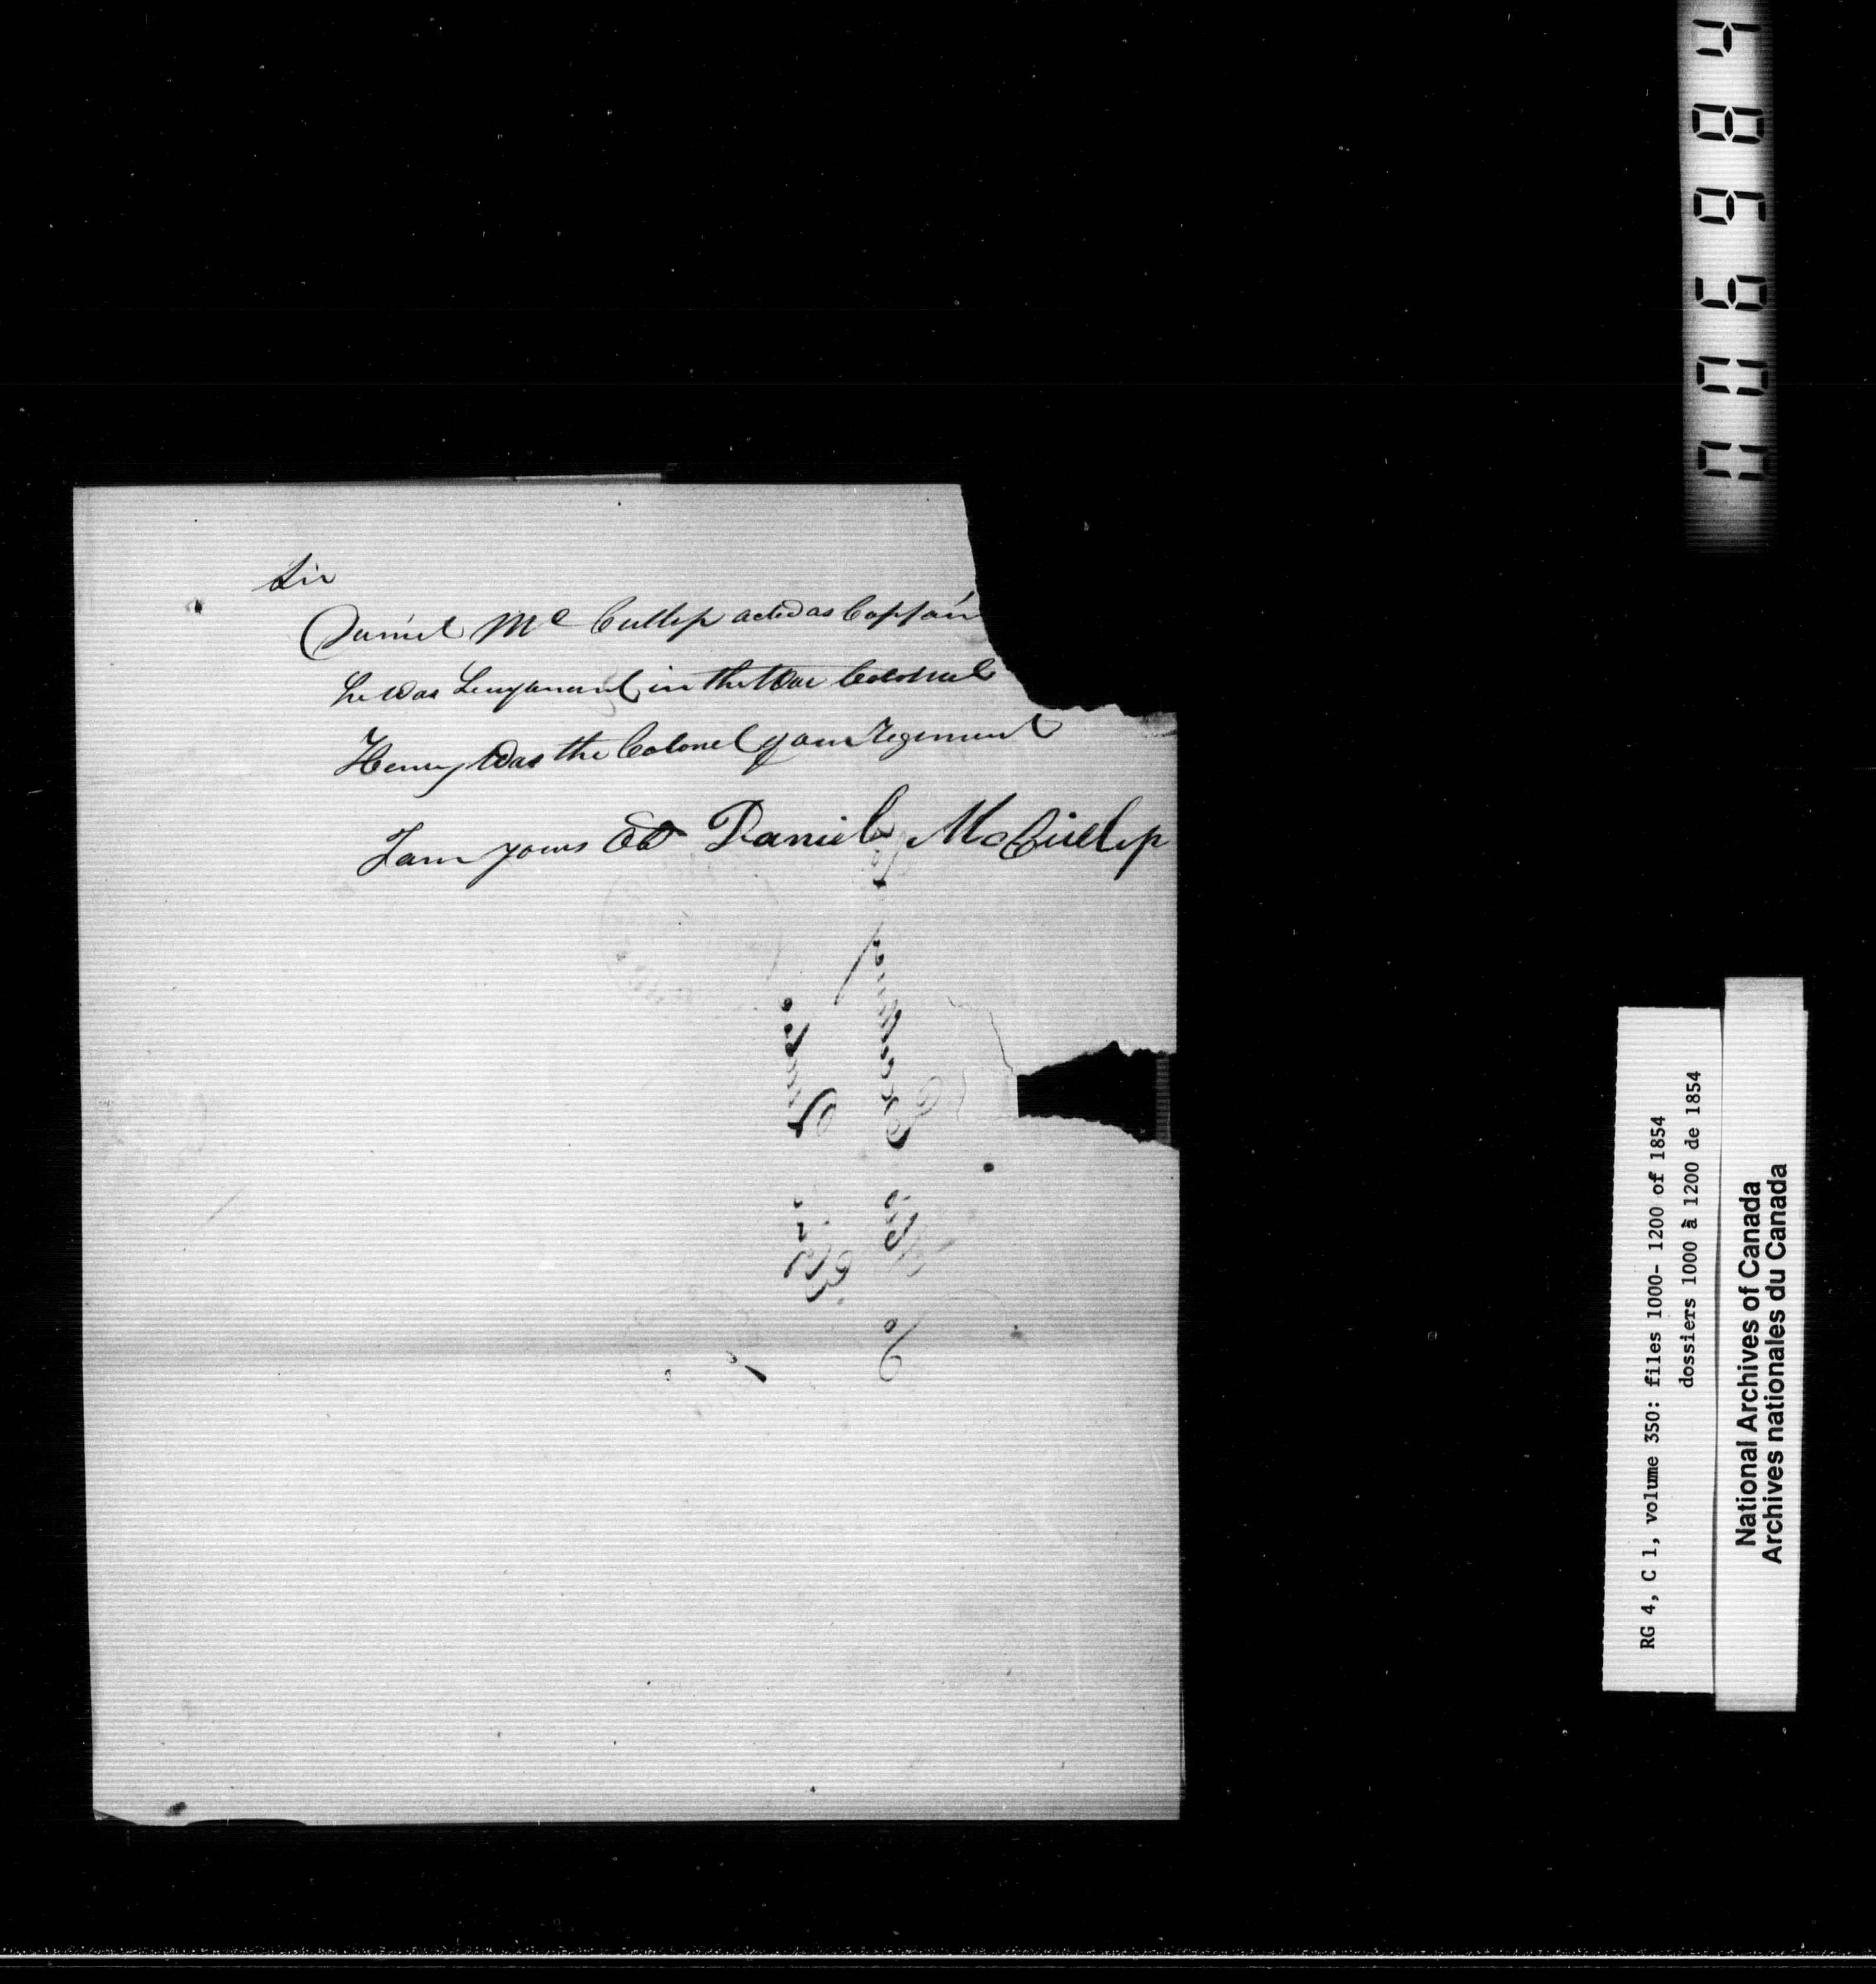 Sir
Daniel Mc Cullip acted as Captain
he was Leuyanant in the War Colonel
Henry was the Colonel of our regement
I am yours &c Daniel McCullip
006984
RG 4, C 1, volume 350: files 1000- 1200 of 1854
dossiers 1000 à 1200 de 1854
National Archives of Canada
Archives nationales du Canada